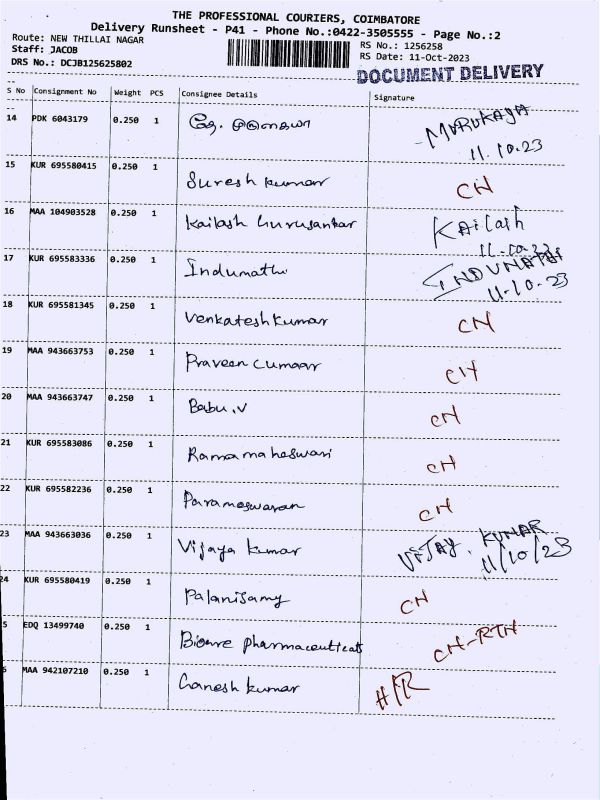 THE PROFESSIONAL COURIERS, COIMBATORE
Delivery Runsheet - P41 - Phone No.:0422-3505555 - Page No.:2
Route: NEW THILLAI NAGAR
Staff: JACOB
DRS No.: DCJB125625802
RS No.: 1256258
RS Date: 11-Oct-2023
DOCUMENT DELIVERY
S No Consignment No Weight PCS Consignee Details Signature
14 PDK 6043179 0.250 1 MURUKAYA
11.10.23
15 KUR 695580415 0.250 1 Suresh kumar CN
16 MAA 104903528 0.250 1 Kailash Gurusankar Kailash
11.10.23
17 KUR 695583336 0.250 1 Indumathi INDUMATHI
11-10.23
18 KUR 695581345 0.250 1 Venkateshkumar CN
19 MAA 943663753 0.250 1 Praveen Cumaar CN
20 MAA 943663747 0.250 1 Babu.V CN
21 KUR 695583086 0.250 1 Ramamaheswari CN
22 KUR 695582236 0.250 1 Parameswaran CN
23 MAA 943663036 0.250 1 Vijaya kumar VIJAY. KUMAR
11/10/23
24 KUR 695580419 0.250 1 Palanisamy CN
5 EDQ 13499740 0.250 1 pharmaceuticals CN-RTN
6 MAA 942107210 0.250 1 Ganesh kumar H/R